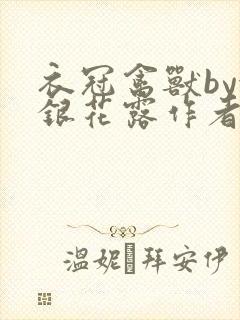 衣冠禽獸by
銀花露作者
溫妮�拜安伊